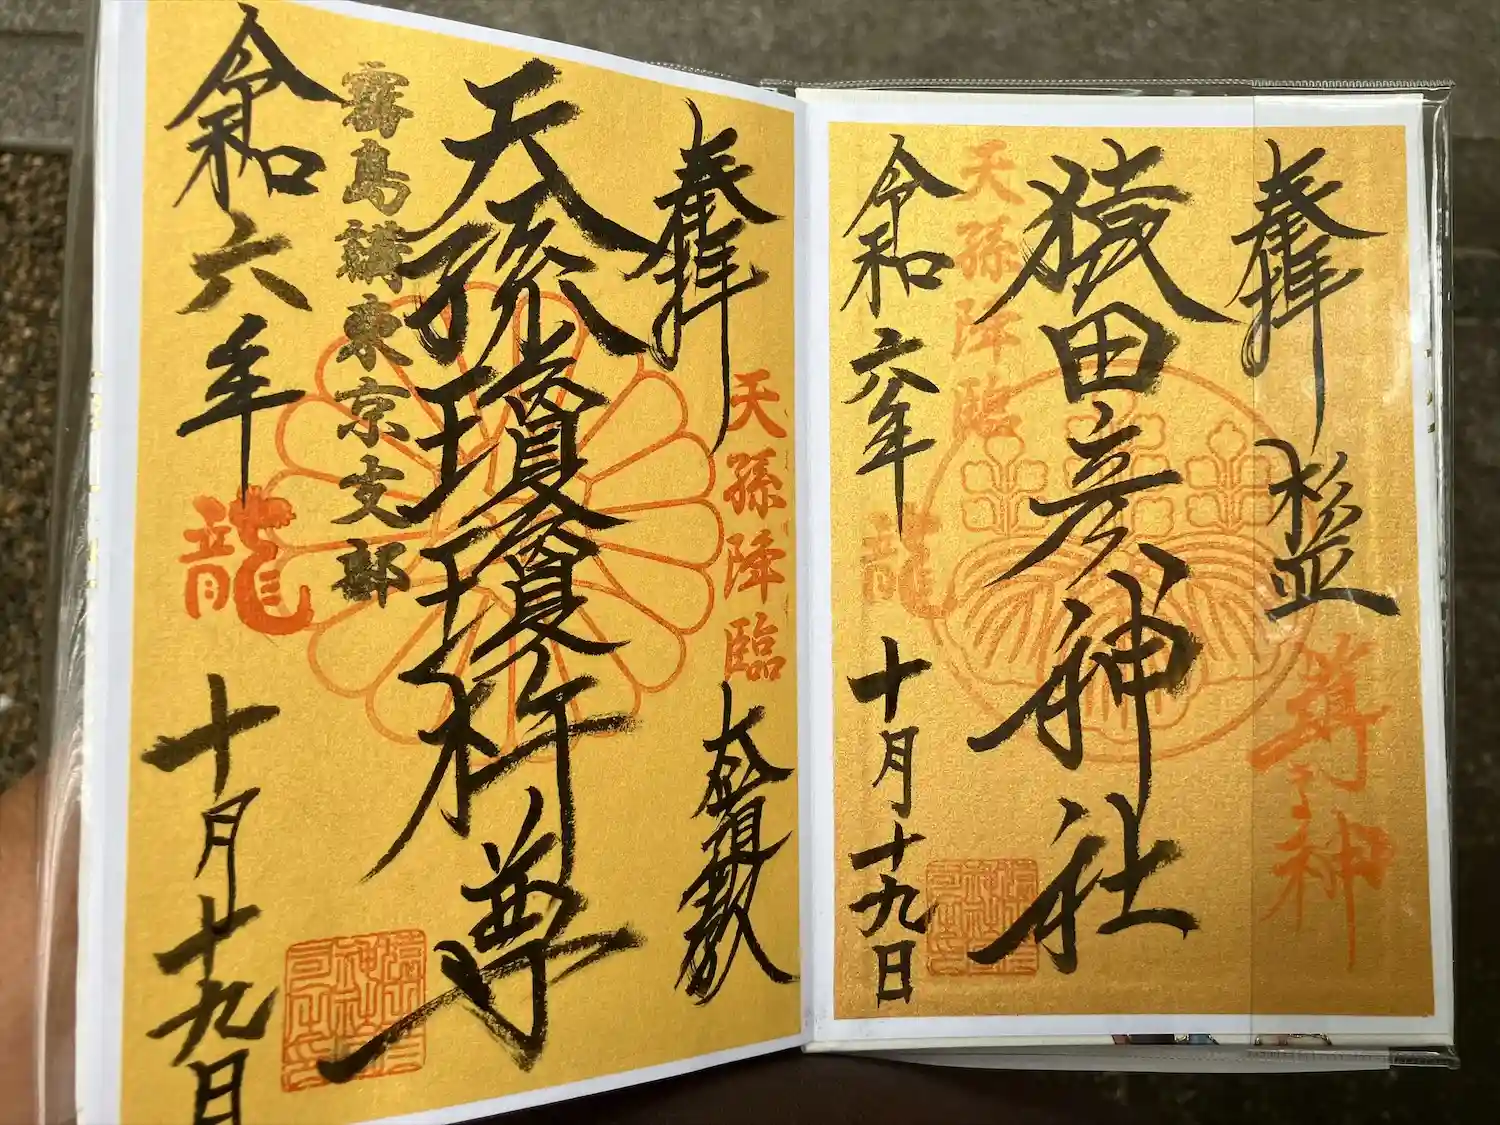 奉拝
杉並
神
猿田彦神社
天孫降臨
令和六年
龍
十月十九日
奉拝
天孫降臨
天孫瓊瓊杵尊
霧島講東京支部
令和六年
龍
十月十九日